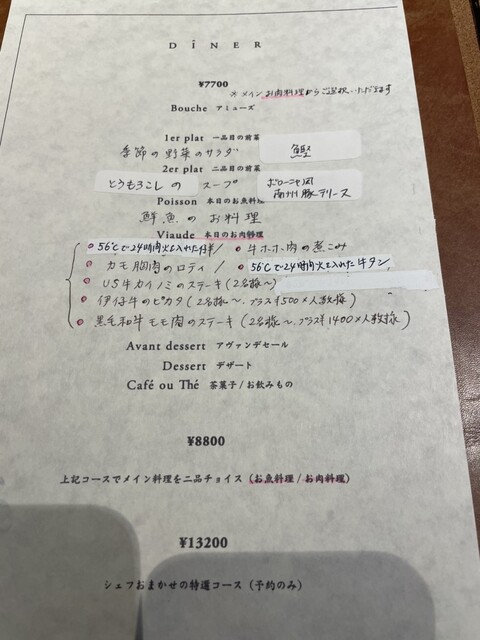 DÎNER
¥7700
※メインお肉料理からご選択いただきます
Bouche アミューズ
1er plat 一品目の前菜
季節の野菜のサラダ 鰹
2er plat 二品目の前菜
とうもろこしの スープ ボローニャ風 南州豚テリース
Poisson 本日のお魚料理
鮮魚のお料理
Viaude 本日のお肉料理
56℃で24時間火を入れた / 牛ホホ肉の煮こみ
カモ胸肉のロティ / 56℃で24時間火を入れた牛タン
US牛カイノミのステーキ(2名様〜)
伊仔牛のピカタ(2名様〜、プラス¥500×人数様)
黒毛和牛モモ肉のステーキ(2名様〜、プラス¥1400×人数様)
Avant dessert アヴァンデセール
Dessert デザート
Café ou Thé 茶菓子/お飲みもの
¥8800
上記コースでメイン料理を二品チョイス(お魚料理/お肉料理)
¥13200
シェフおまかせの特選コース(予約のみ)